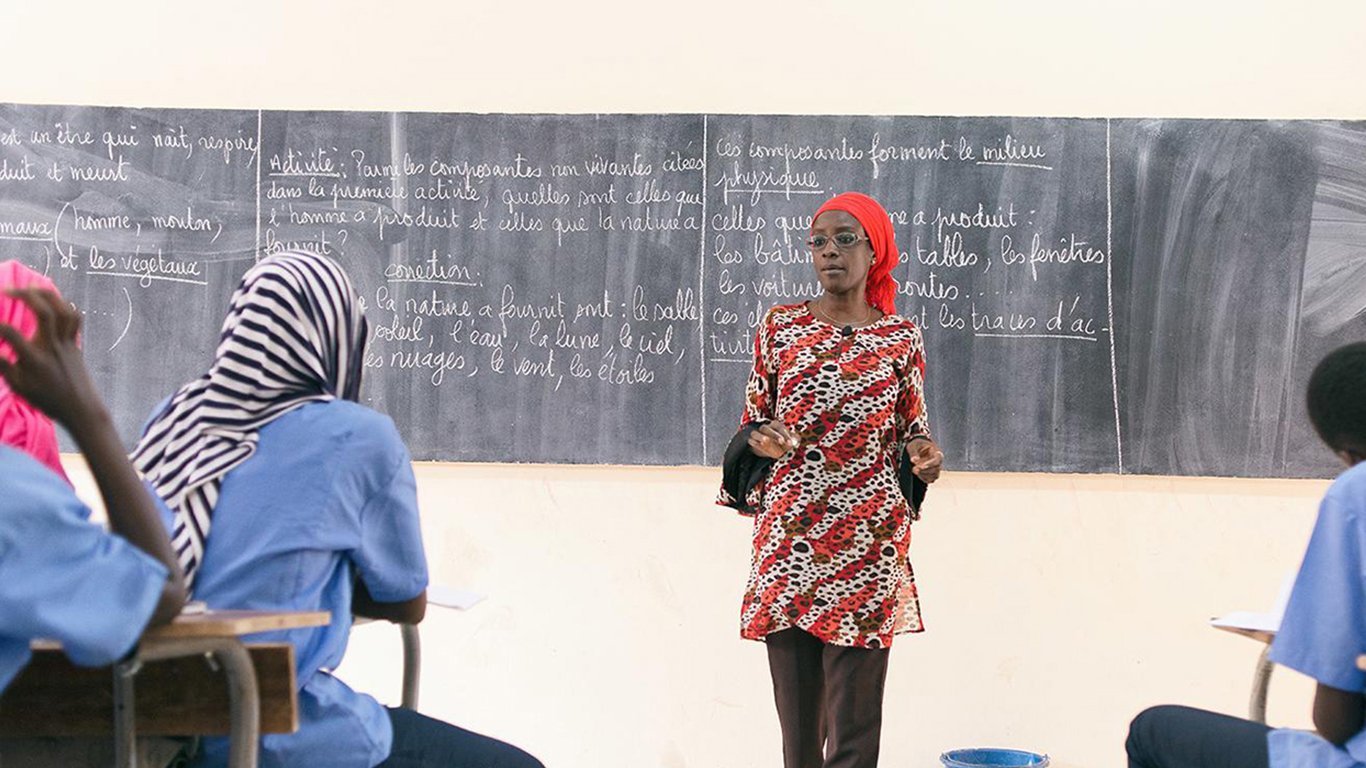 est un être qui naît, respire,
duit et meurt
maux (homme, mouton,
...) et les végétaux
...)
Activité : Parmi les composantes non vivantes citées
dans la première activité, quelles sont celles que
l'homme a produit et celles que la nature a
fournit ?
correction :
la nature a fournit sont : le sable
soleil, l'eau, la lune, le ciel,
es nuages, le vent, les étoiles
Ces composantes forment le milieu
physique.
celles que a produit :
les tables, les fenêtres
les routes....
ces les traces d'ac-